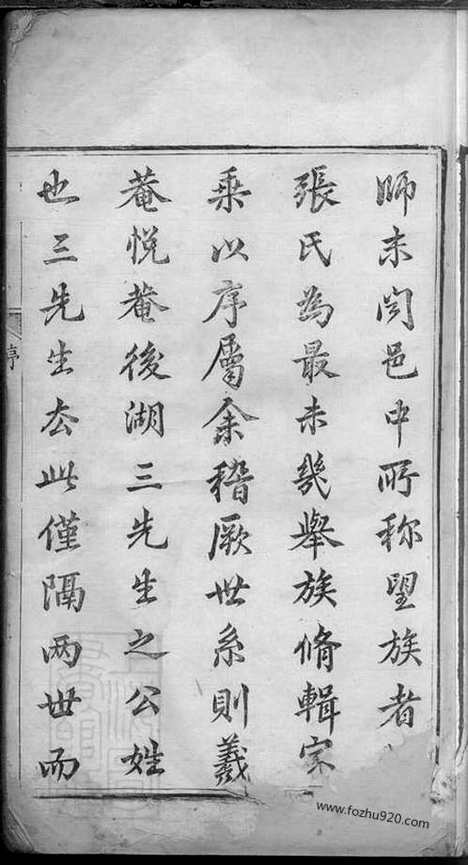 師来閱邑中所称望族者
張氏為最未幾舉族脩輯宗
乗以序属余稽厥世系則羲
菴悦菴後湖三先生之公姓
也三先生去此僅隔两世而
序
www.fozhu920.com